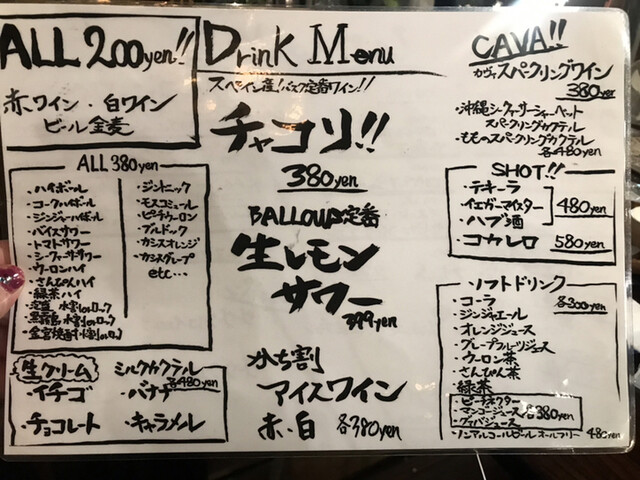 ALL 200yen!!
赤ワイン・白ワイン
ビール金麦
Drink Menu
スペイン産!バスク定番ワイン!!
チャコリ!!
380yen
BALLOUP定番
生レモン
サワー
399yen
かち割
アイスワイン
赤・白 各380yen
CAVA!!
カヴァスパークリングワイン
380yen
・沖縄シークァーサーシャーベット
スパークリングカクテル
・もものスパークリングカクテル
各480yen
ALL 380yen
・ハイボール
・コークハイボール
・ジンジャーハイボール
・バイスサワー
・トマトサワー
・シークァーサーサワー
・ウーロンハイ
・さんぴんハイ
・緑茶ハイ
・泡盛 水割りorロック
・黒霧島 水割りorロック
・金宮焼酎 水割りorロック
・ジントニック
・モスコミュール
・ピーチウーロン
・ブルドック
・カシスオレンジ
・カシスグレープ
etc…
SHOT!!
・テキーラ
・イエガーマイスター
・ハブ酒
480yen
・コカレロ 580yen
ソフトドリンク
各300yen
・コーラ
・ジンジャエール
・オレンジジュース
・グレープフルーツジュース
・ウーロン茶
・さんぴん茶
・緑茶
・ピーチネクター
・マンゴージュース
・グァバジュース
各380yen
・ノンアルコールビール オールフリー 480yen
生クリーム ミルクカクテル
各480yen
・イチゴ ・バナナ
・チョコレート ・キャラメル